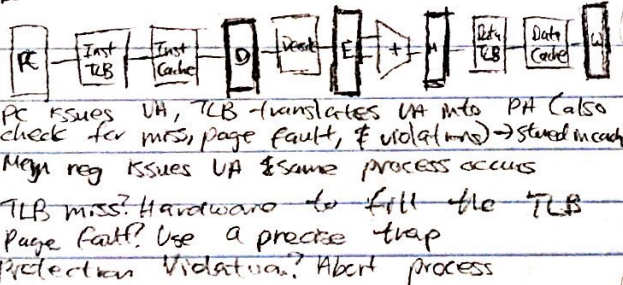 PC Inst TLB Inst Cache D Decode E + M Data TLB Data Cache W
PC issues VA, TLB translates VA into PA (also
check for miss, page fault, & violations) → stored in cach
Mem reg issues VA & same process occurs
TLB miss? Hardware to fill the TLB
Page fault? Use a precise trap
Protection Violation? Abort process